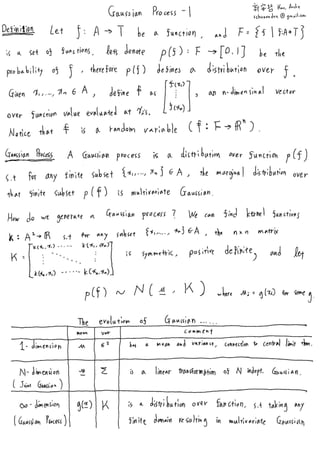 Gaussian Process - 1
Definition. Let f: A → T be a function, and F = {f | f: A→T}
is a set of functions. let's denote p(f): F → [0,1] be the
probability of f, therefore p(f) defines a distribution over f.
Given x₁,..., xₙ ∈ A, define f as [f(x₁) ⋮ f(xₙ)], an n-dimensional vector
over function value evaluated at xᵢs.
Notice that f is a random variable (f: F → ℝⁿ).
Gaussian Process. A Gaussian process is a distribution over function p(f)
s.t for any finite subset {x₁,..., xₙ} ∈ A, the marginal distribution over
that finite subset p(f) is multivariate Gaussian.
How do we generate a Gaussian process? We can find kernel functions
k: A² → ℝ s.t for any subset {x₁,..., xₙ} ∈ A, the n×n matrix
K = [k(x₁,x₁) ...... k(x₁,xₙ) ⋮ k(xₙ,x₁) ...... k(xₙ,xₙ)] is symmetric, positive definite, and let
p(f) ~ N(u, K) where uᵢ = g(xᵢ) for some g.
The evolution of Gaussian ......
mean var comment
1-dimension u σ² has a mean and variance, connection to central limit thm.
N-dimension u Σ is a linear transformation of N indept. Gaussian.
(Joint Gaussian)
∞-dimension g(x) K is a distribution over function, s.t taking any
(Gaussian Process) finite domain resulting in multivariate Gaussian